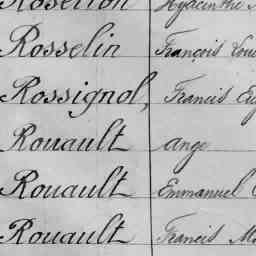 Rosselin François
Rossignol, Francis
Rouault ange
Rouault Emmanuel
Rouault Francis